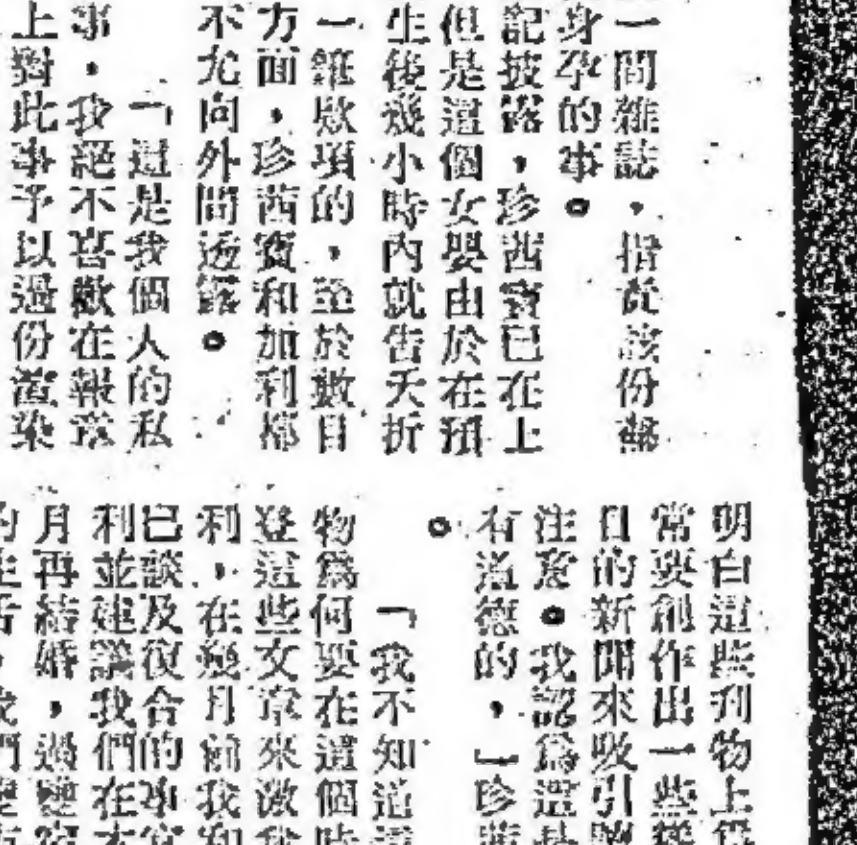 一間雜誌，指責該份雜
身孕的事。
記披露，珍茜寶已在上
但是這個女嬰由於在預
生後幾小時內就告夭折
一維款項的，至於數目
方面，珍茜寶和加利都
不允向外間透露。
「這是我個人的私
事，我絕不喜歡在報章
上對此事予以過份渲染
明白這些刊物上
常要創作出一些
目的新聞來吸引
注意。我認為這
有道德的，」珍
。
「我不知道
物為何要在這個時
登這些文章來激
利，在幾月前我和
已談及復合的事
利並建議我們在
月再結婚，過